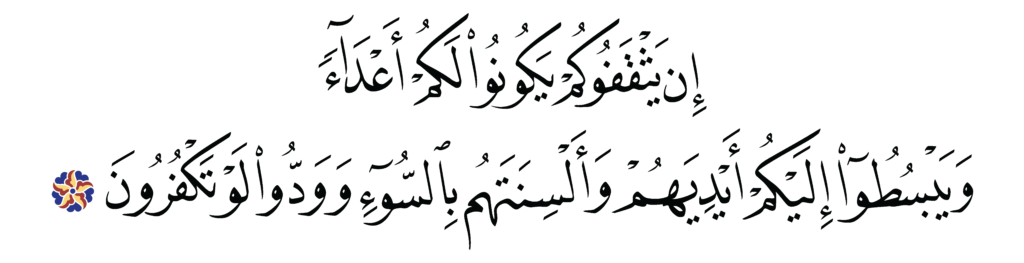 إِن يَثْقَفُوكُمْ يَكُونُوا۟ لَكُمْ أَعْدَآءً
وَيَبْسُطُوٓا۟ إِلَيْكُمْ أَيْدِيَهُمْ وَأَلْسِنَتَهُم بِٱلسُّوٓءِ وَوَدُّوا۟ لَوْ تَكْفُرُونَ